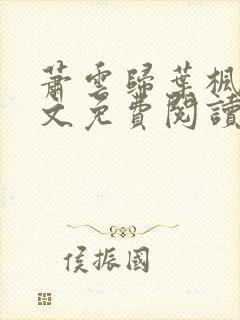 蕭雲歸葉楓
文免費閱讀
侯振國